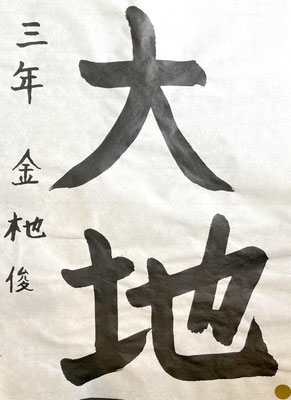 大地
三年 金杝俊